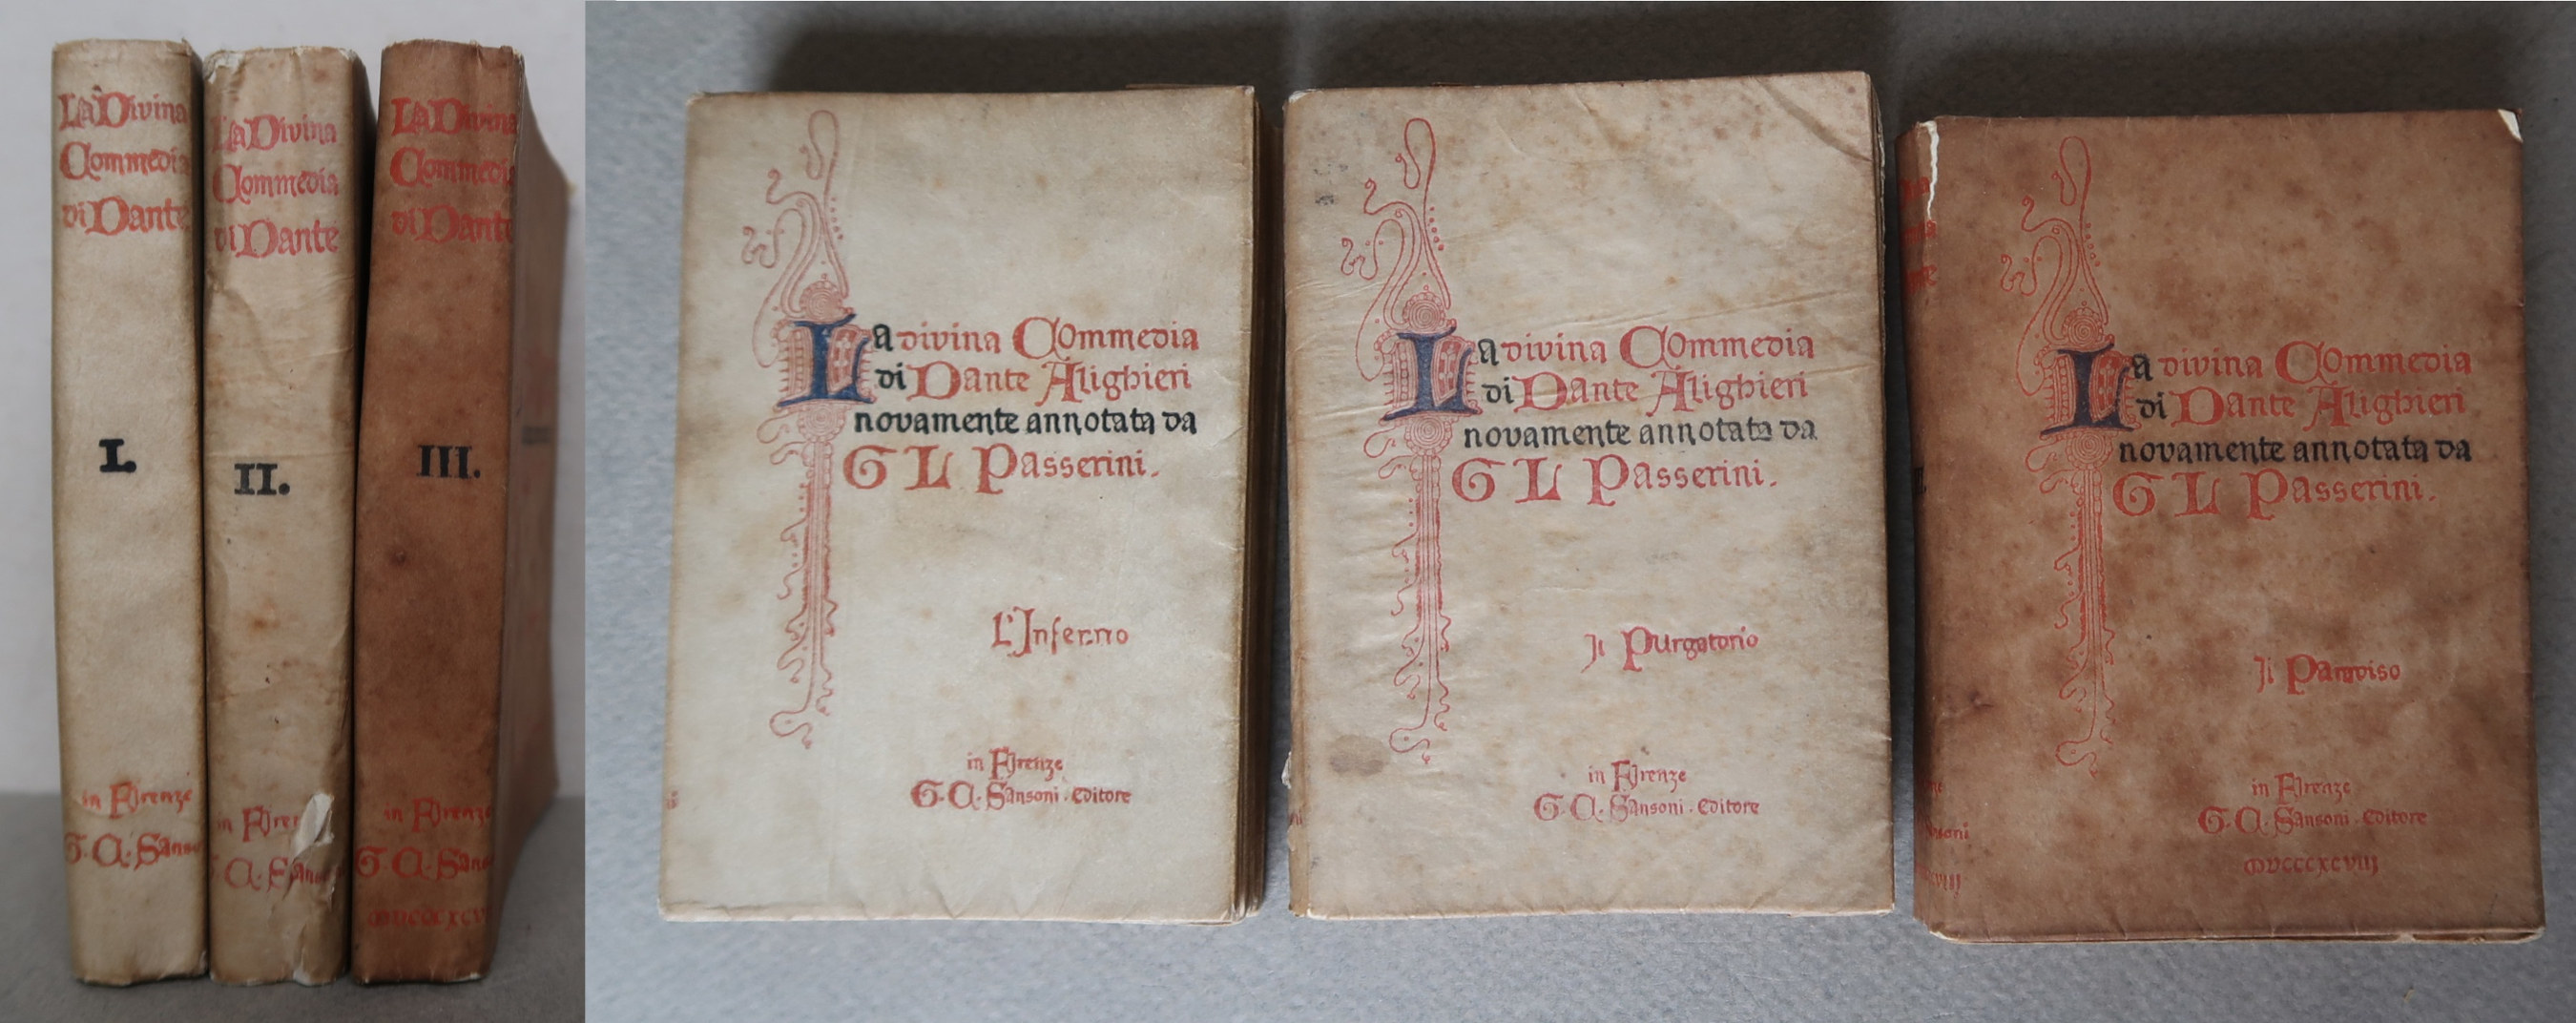 La Divina
Commedia
di Dante
I.
in Firenze
G. C. Sanso
La Divina
Commedia
di Dante
II.
in Firen
C. San
La Divina
Commedia
di Dante
III.
in Firenze
G. C. Sans
MDCCCXCV
La divina Commedia
di Dante Alighieri
novamente annotata da
G L Passerini.
L'Inferno
in Firenze
G. C. Sansoni. Editore
La divina Commedia
di Dante Alighieri
novamente annotata da
G L Passerini.
Il Purgatorio
in Firenze
G. C. Sansoni. Editore
La divina Commedia
di Dante Alighieri
novamente annotata da
G L Passerini.
Il Paradiso
in Firenze
G. C. Sansoni. Editore
MDCCCXCVIII